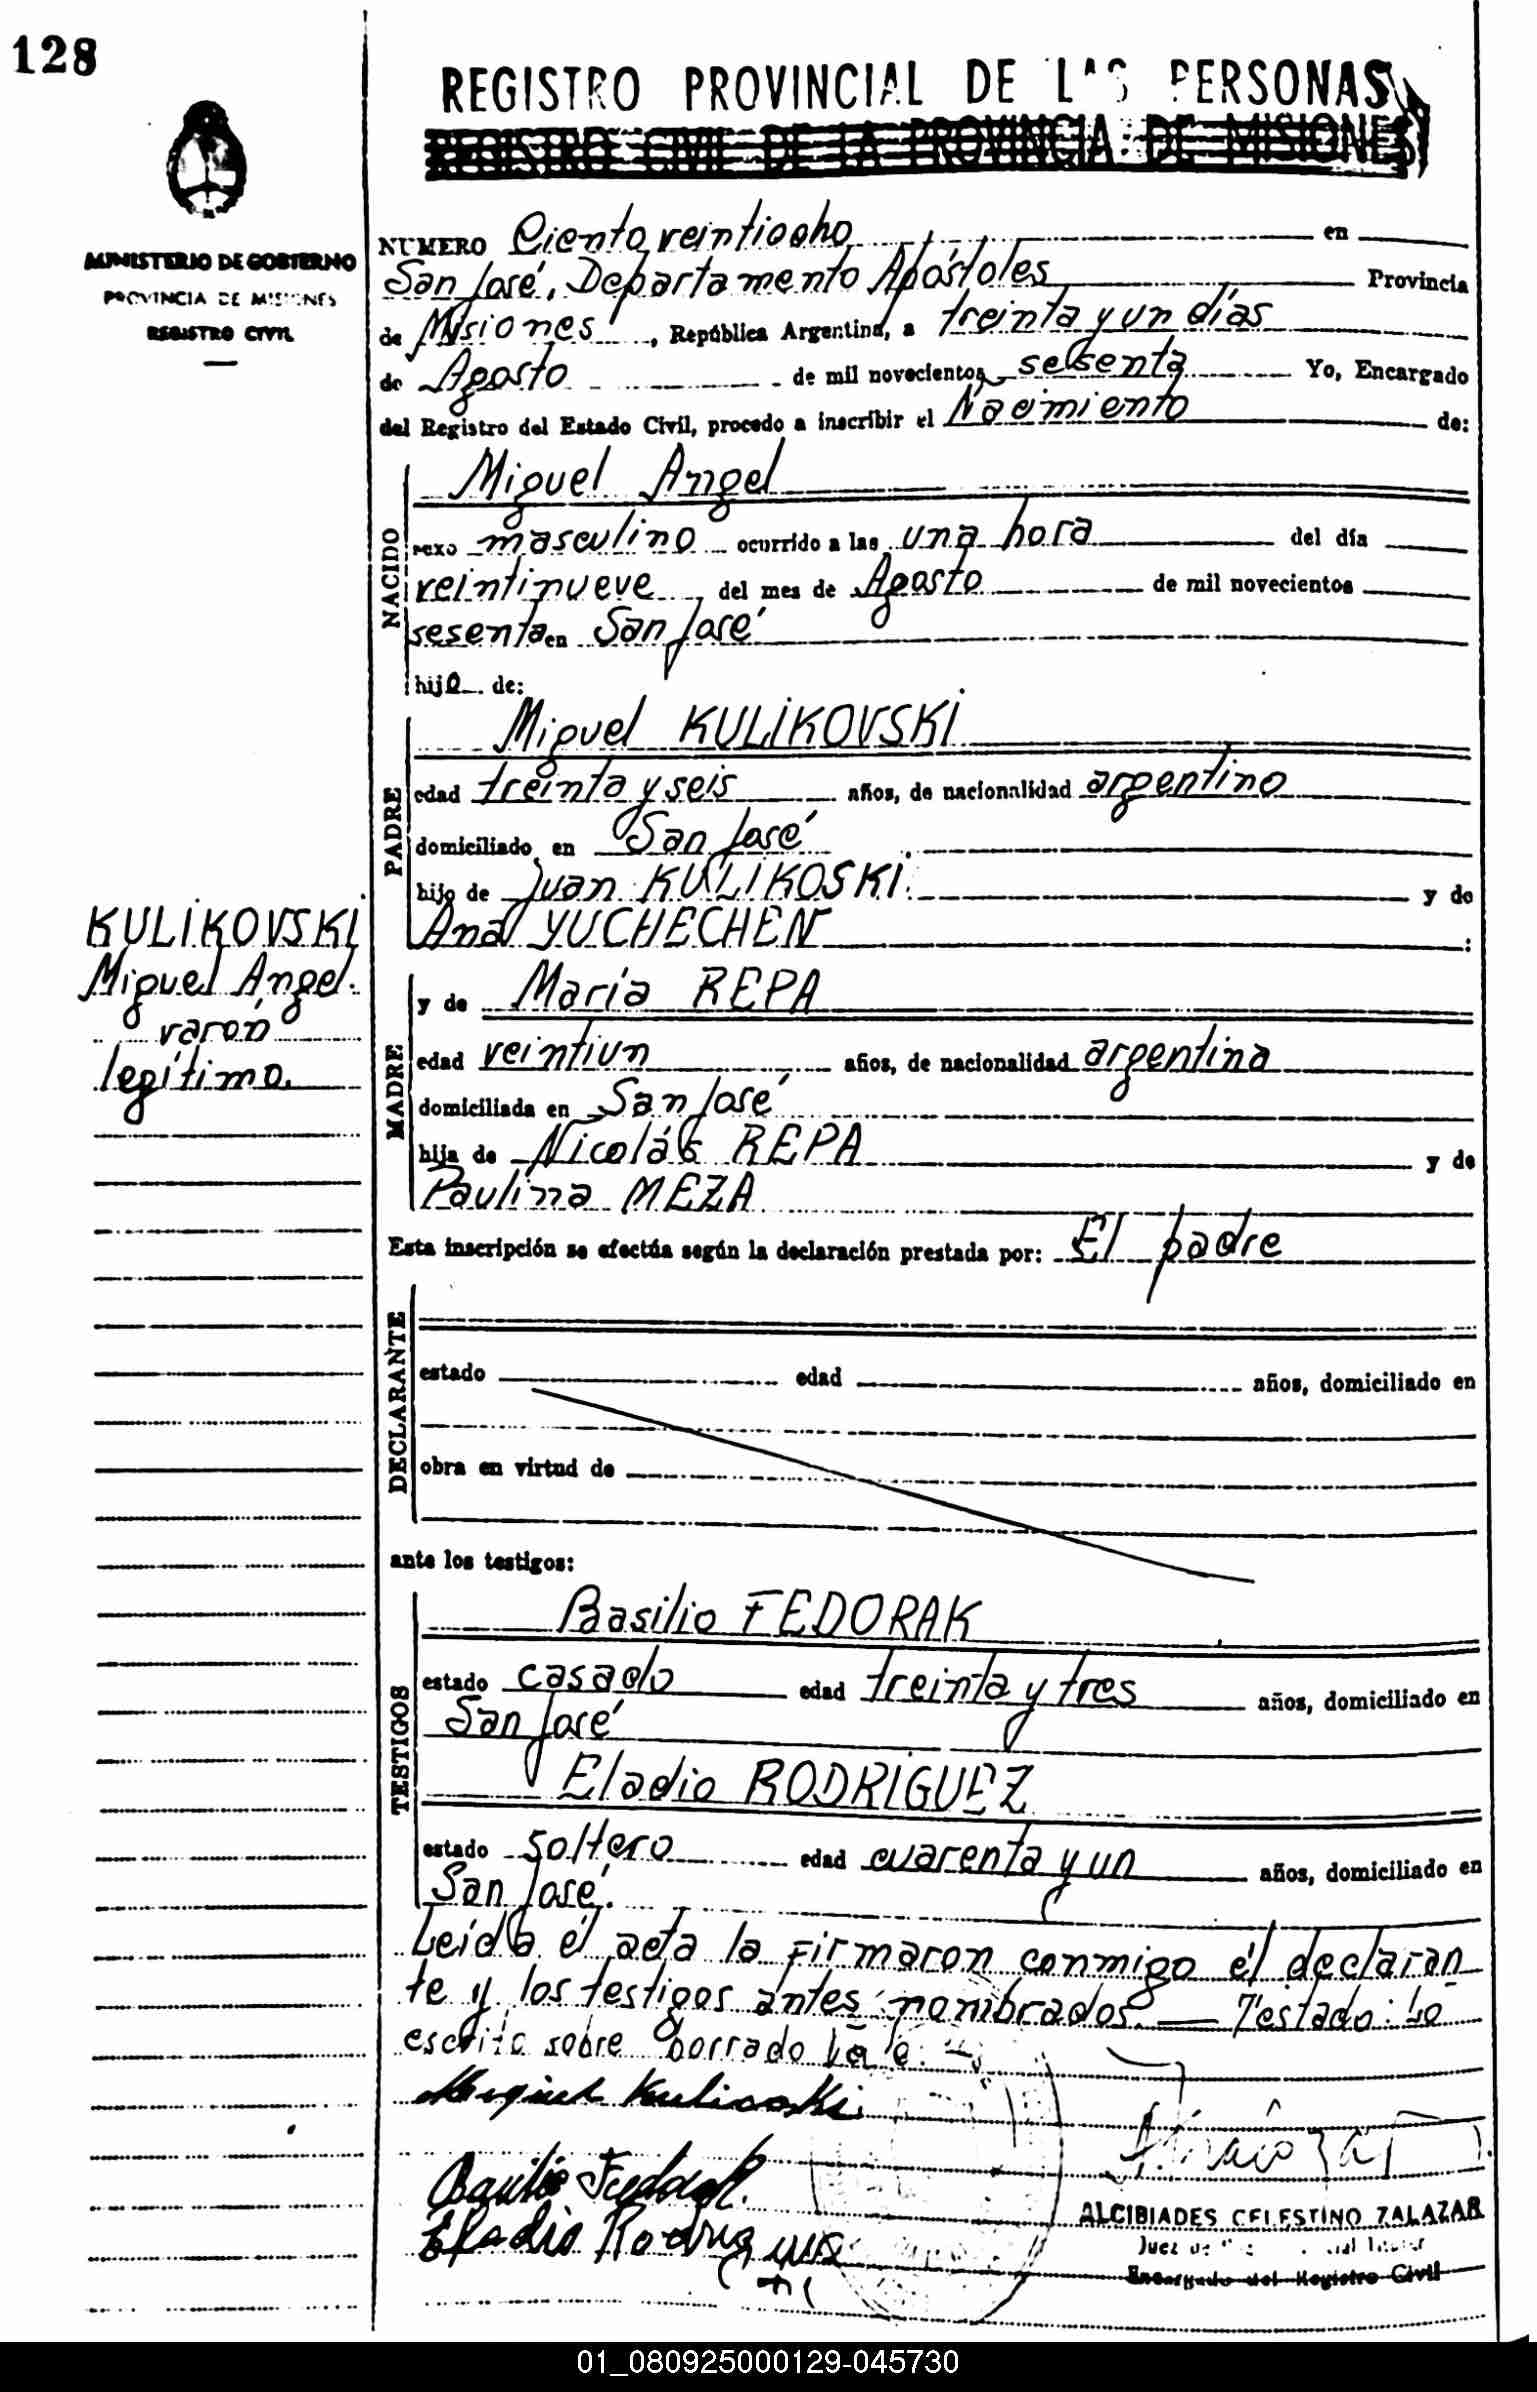 128
REGISTRO PROVINCIAL DE LAS PERSONAS
REGISTRO CIVIL DE LA PROVINCIA DE MISIONES
MINISTERIO DE GOBIERNO
PROVINCIA DE MISIONES
REGISTRO CIVIL
NUMERO Ciento veintiocho en
San José, Departamento Apóstoles Provincia
de Misiones, República Argentina, a treinta y un días
de Agosto de mil novecientos sesenta Yo, Encargado
del Registro del Estado Civil, procedo a inscribir el Nacimiento de:
NACIDO
Miguel Angel
sexo masculino ocurrido a las una hora del día
veintinueve del mes de Agosto de mil novecientos
sesenta en San José
hijo de:
PADRE
Miguel KULIKOVSKI
edad treinta y seis años, de nacionalidad argentino
domiciliado en San José
hijo de Juan KULIKOSKI y de
Ana YUCHECHEN :
KULIKOVSKI
Miguel Angel.
varón
legítimo.
MADRE
y de María REPA
edad veintiun años, de nacionalidad argentina
domiciliada en San José
hija de Nicolás REPA y de
Paulina MEZA
Esta inscripción se efectúa según la declaración prestada por: El padre
DECLARANTE
estado edad años, domiciliado en
obra en virtud de
ante los testigos:
TESTIGOS
Basilio FEDORAK
estado casado edad treinta y tres años, domiciliado en
San José
Eladio RODRIGUEZ
estado soltero edad cuarenta y un años, domiciliado en
San José.
Leída el acta la firmaron conmigo el declaran
te y los testigos antes nombrados. — Testado: Lo
escrito sobre borrado
Miguel Kulicoski
Basilio Fedorak.
Eladio Rodrigues
ALCIBIADES CELESTINO ZALAZAR
Juez de
Encargado del Registro Civil
01_080925000129-045730